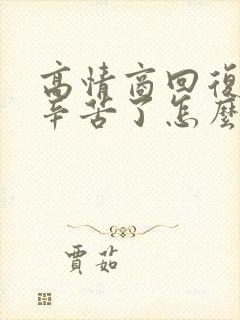 高情商回復
辛苦了怎麼
賈茹